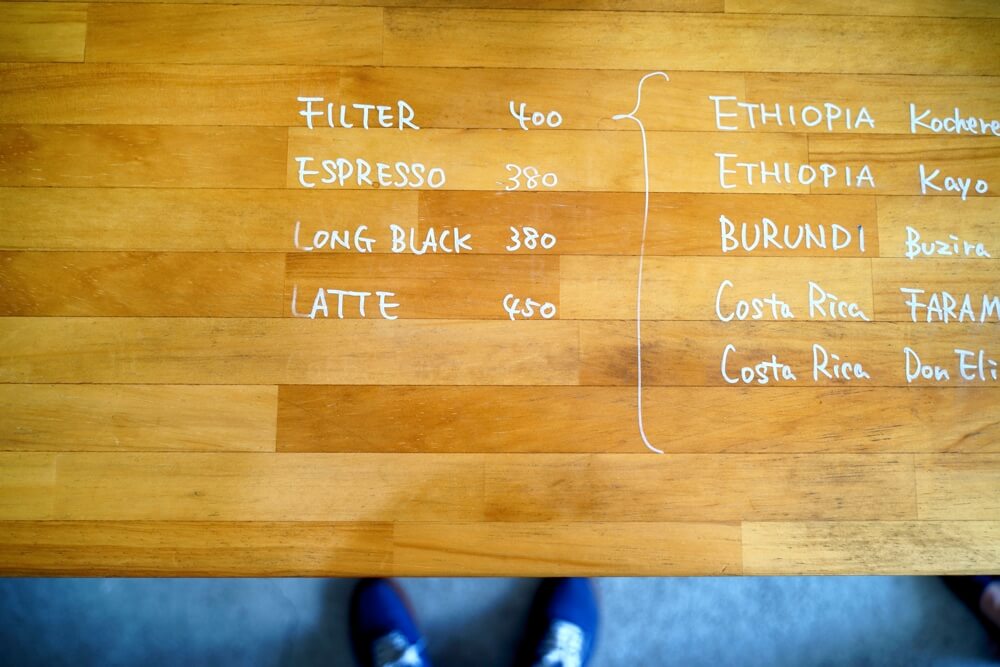 FILTER 400 ETHIOPIA Kochere
ESPRESSO 380 ETHIOPIA Kayo
LONG BLACK 380 BURUNDI Buzira
LATTE 450 Costa Rica FARAM
Costa Rica Don Eli